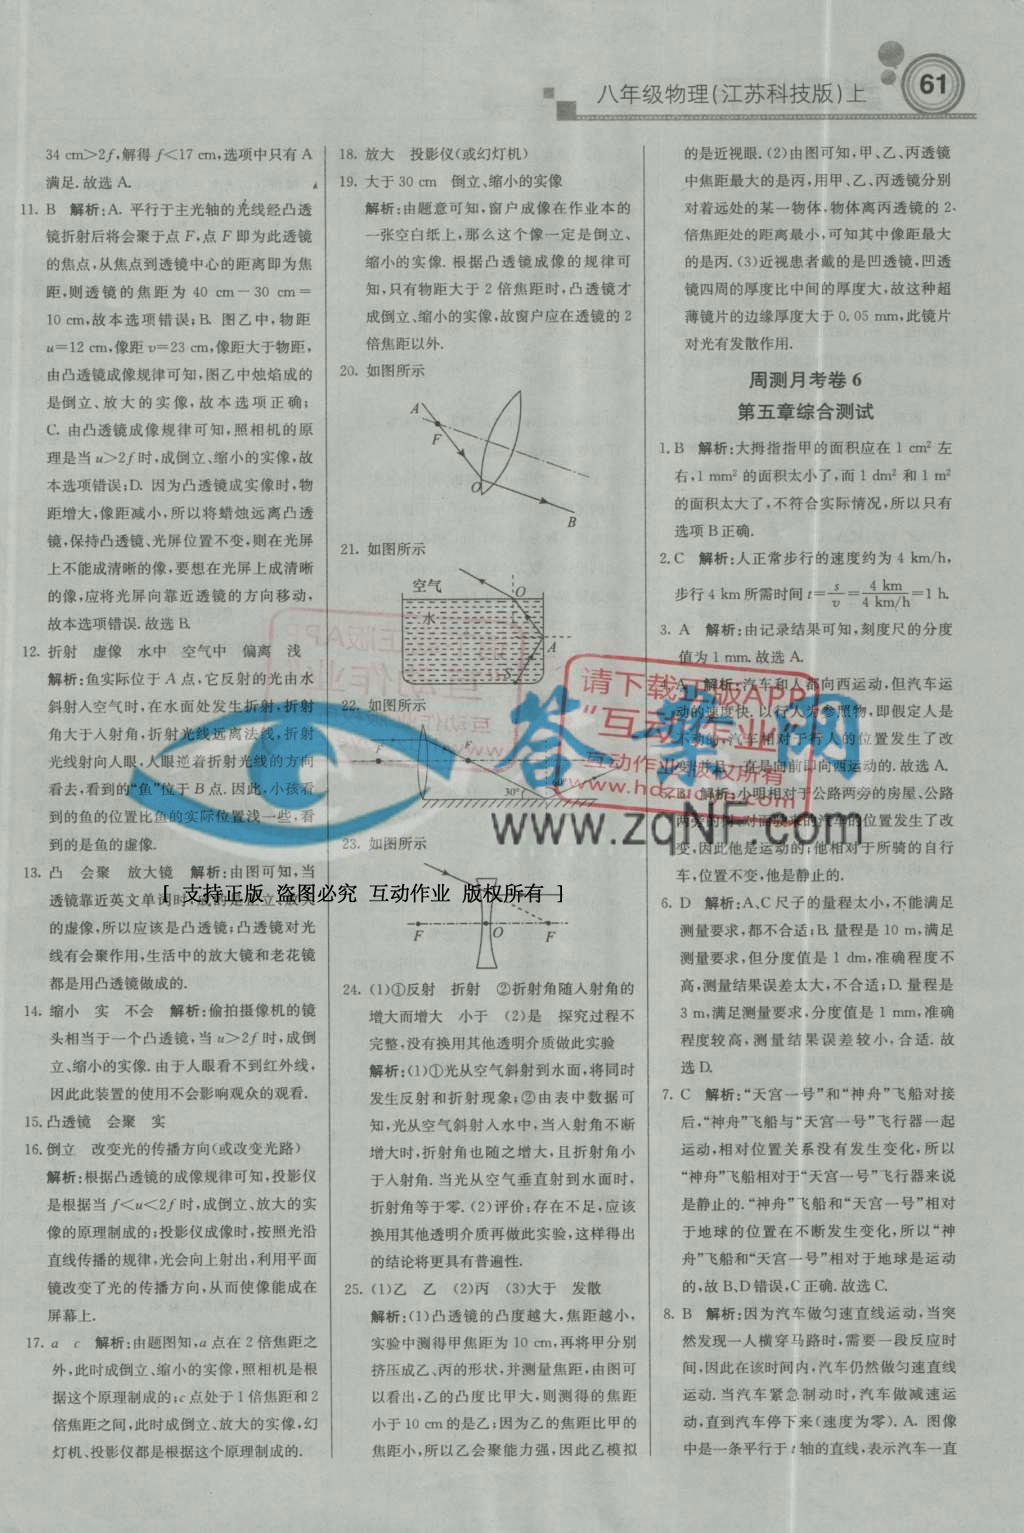 八年级物理(江苏科技版)上
61
34 cm>2f,解得 f<17 cm,选项中只有 A
满足.故选 A.
11. B 解析:A. 平行于主光轴的光线经凸透
镜折射后将会聚于点 F,点 F 即为此透镜
的焦点,从焦点到透镜中心的距离即为焦
距,则透镜的焦距为 40 cm－30 cm＝
10 cm,故本选项错误;B. 图乙中,物距
u＝12 cm,像距 v＝23 cm,像距大于物距,
由凸透镜成像规律可知,图乙中烛焰成的
是倒立、放大的实像,故本选项正确;
C. 由凸透镜成像规律可知,照相机的原
理是当 u>2f 时,成倒立、缩小的实像,故
本选项错误;D. 因为凸透镜成实像时,物
距增大,像距减小,所以将蜡烛远离凸透
镜,保持凸透镜、光屏位置不变,则在光屏
上不能成清晰的像,要想在光屏上成清晰
的像,应将光屏向靠近透镜的方向移动,
故本选项错误.故选 B.
12. 折射 虚像 水中 空气中 偏离 浅
解析:鱼实际位于 A 点,它反射的光由水
斜射入空气时,在水面处发生折射,折射
角大于入射角,折射光线远离法线,折射
光线射向人眼,人眼逆着折射光线的方向
看去,看到的“鱼”位于 B 点.因此,小孩看
到的鱼的位置比鱼的实际位置浅一些,看
到的是鱼的虚像.
13. 凸 会聚 放大镜 解析:由图可知,当
透镜靠近英文单词时,成的是正立、放大
的虚像,所以应该是凸透镜;凸透镜对光
线有会聚作用,生活中的放大镜和老花镜
都是用凸透镜做成的.
14. 缩小 实 不会 解析:偷拍摄像机的镜
头相当于一个凸透镜,当 u>2f 时,成倒
立、缩小的实像.由于人眼看不到红外线,
因此此装置的使用不会影响观众的观看.
15. 凸透镜 会聚 实
16. 倒立 改变光的传播方向(或改变光路)
解析:根据凸透镜的成像规律可知,投影仪
是根据当 f<u<2f 时,成倒立、放大的实
像的原理制成的;投影仪成像时,按照光沿
直线传播的规律,光会向上射出,利用平面
镜改变了光的传播方向,从而使像能成在
屏幕上.
17. a c 解析:由题图知,a 点在 2 倍焦距之
外,此时成倒立、缩小的实像,照相机是根
据这个原理制成的;c 点处于 1 倍焦距和 2
倍焦距之间,此时成倒立、放大的实像,幻
灯机、投影仪都是根据这个原理制成的.
18. 放大 投影仪(或幻灯机)
19. 大于 30 cm 倒立、缩小的实像
解析:由题意可知,窗户成像在作业本的
一张空白纸上,那么这个像一定是倒立、
缩小的实像.根据凸透镜成像的规律可
知,只有物距大于 2 倍焦距时,凸透镜才
成倒立、缩小的实像,故窗户应在透镜的 2
倍焦距以外.
20. 如图所示
A
F
O
B
21. 如图所示
空气
O
水
A
S
22. 如图所示
F
F
30°
23. 如图所示
F
O
F
24. (1)①反射 折射 ②折射角随入射角的
增大而增大 小于 (2)是 探究过程不
完整,没有换用其他透明介质做此实验
解析:(1)①光从空气斜射到水面,将同时
发生反射和折射现象;②由表中数据可
知,光从空气斜射入水中,当入射角不断
增大时,折射角也随之增大,且折射角小
于入射角.当光从空气垂直射到水面时,
折射角等于零.(2)评价:存在不足,应该
换用其他透明介质再做此实验,这样得出
的结论将更具有普遍性.
25. (1)乙 乙 (2)丙 (3)大于 发散
解析:(1)凸透镜的凸度越大,焦距越小,
实验中测得甲焦距为 10 cm,再将甲分别
挤压成乙、丙的形状,并测量焦距,由图可
以看出,乙的凸度比甲大,则测得的焦距
小于 10 cm 的是乙;因为乙的焦距比甲的
焦距小,所以乙会聚能力强,因此乙模拟
的是近视眼.(2)由图可知,甲、乙、丙透镜
中焦距最大的是丙,用甲、乙、丙透镜分别
对着远处的某一物体,物体离丙透镜的 2
倍焦距处的距离最小,可知其中像距最大
的是丙.(3)近视患者戴的是凹透镜,凹透
镜四周的厚度比中间的厚度大,故这种超
薄镜片的边缘厚度大于 0.05 mm,此镜片
对光有发散作用.
周测月考卷 6
第五章综合测试
1. B 解析:大拇指指甲的面积应在 1 cm² 左
右,1 mm² 的面积太小了,而 1 dm² 和 1 m²
的面积太大了,不符合实际情况,所以只有
选项 B 正确.
2. C 解析:人正常步行的速度约为 4 km/h,
步行 4 km 所需时间 t＝s/v＝4 km/4 km/h＝1 h.
3. A 解析:由记录结果可知,刻度尺的分度
值为 1 mm.故选 A.
4. A 解析:汽车和人都向西运动,但汽车运
动的速度快.以行人为参照物,即假定人是
不动的,汽车相对于行人的位置发生了改
变,并且一直是向前即向西运动的.故选 A.
5. B 解析:小明相对于公路两旁的房屋、公路
两旁的树、对面驶来的汽车的位置发生了改
变,因此他是运动的;他相对于所骑的自行
车,位置不变,他是静止的.
6. D 解析:A、C 尺子的量程太小,不能满足
测量要求,都不合适;B. 量程是 10 m,满足
测量要求,但分度值是 1 dm,准确程度不
高,测量结果误差太大,不合适;D. 量程是
3 m,满足测量要求,分度值是 1 mm,准确
程度较高,测量结果误差较小,合适.故
选 D.
7. C 解析:“天宫一号”和“神舟”飞船对接
后,“神舟”飞船与“天宫一号”飞行器一起
运动,相对位置关系没有发生变化,所以
“神舟”飞船相对于“天宫一号”飞行器来说
是静止的.“神舟”飞船和“天宫一号”相对
于地球的位置在不断发生变化,所以“神
舟”飞船和“天宫一号”相对于地球是运动
的,故 B、D 错误,C 正确.故选 C.
8. B 解析:因为汽车做匀速直线运动,当突
然发现一人横穿马路时,需要一段反应时
间,因此在该时间内,汽车仍然做匀速直线
运动.当汽车紧急制动时,汽车做减速运
动,直到汽车停下来(速度为零).A. 图像
中是一条平行于 t 轴的直线,表示汽车一直
请下载正版APP
“互动作业”
互动作业 版权所有
www.hdzuoye.com
答案网
www.zqNF.com
[ 支持正版 盗图必究 互动作业 版权所有 ]